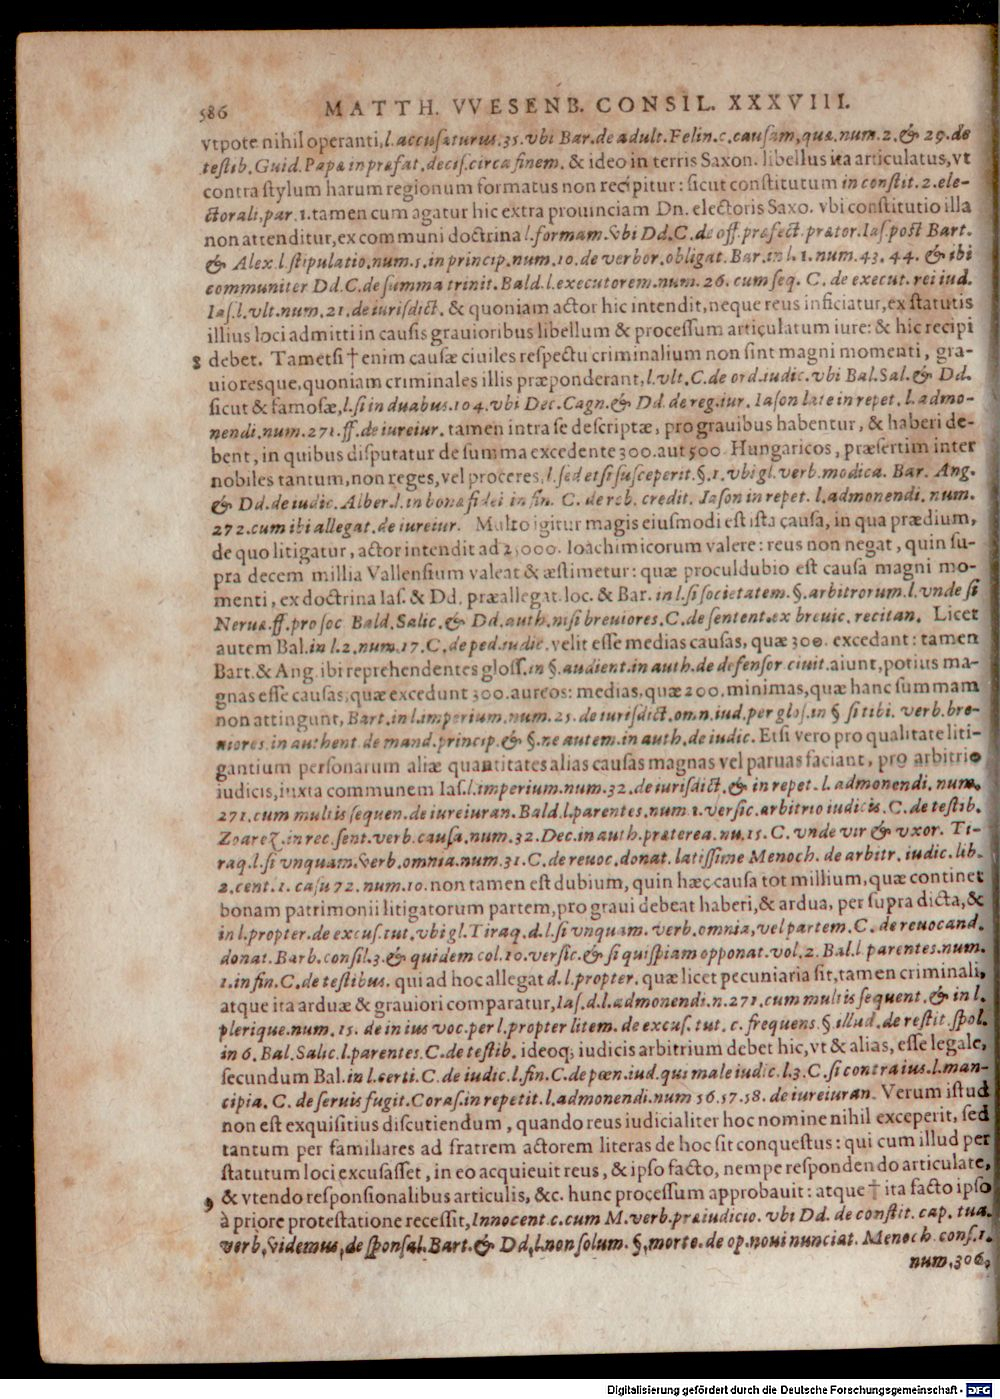 586 MATTH. VVESENB. CONSIL. XXXVIII.
vtpote nihil operanti, l. accusaturus. 35. vbi Bar. de adult. Felin. c. causam, quæ. num. 2. & 29. de
testib. Guid. Papæ in præfat. decis. circa finem. & ideo in terris Saxon. libellus ita articulatus, vt
contra stylum harum regionum formatus non recipitur: sicut constitutum in constit. 2. ele-
ctorali, par. 1. tamen cum agatur hic extra prouinciam Dn. electoris Saxo. vbi constitutio illa
non attenditur, ex communi doctrina l. formam. vbi Dd. C. de off. præfect. prætor. Ias. post Bart.
& Alex. l. stipulatio. num. 5. in princip. num. 10. de verbor. obligat. Bar. in l. 1. num. 43. 44. & ibi
communiter Dd. C. de summa trinit. Bald. l. executorem. num. 26. cum seq. C. de execut. rei iud.
Ias. l. vlt. num. 21. de iurisdict. & quoniam actor hic intendit, neque reus inficiatur, ex statutis
illius loci admitti in causis grauioribus libellum & processum articulatum iure: & hic recipi
8 debet. Tametsi † enim causæ ciuiles respectu criminalium non sint magni momenti, gra-
uioresque, quoniam criminales illis præponderant, l. vlt. C. de ord. iudic. vbi Bal. Sal. & Dd.
sicut & famosæ, l. si in duabus. 104. vbi Dec. Cagn. & Dd. de reg. iur. Iason late in repet. l. admo-
nendi. num. 271. ff. de iureiur. tamen intra se descriptæ, pro grauibus habentur, & haberi de-
bent, in quibus disputatur de summa excedente 300. aut 500 Hungaricos, præsertim inter
nobiles tantum, non reges, vel proceres, l. sed etsi susceperit. §. 1. vbi gl. verb. modica. Bar. Ang.
& Dd. de iudic. Alber. l. in bonæ fidei in fin. C. de reb. credit. Iason in repet. l. admonendi. num.
272. cum ibi allegat. de iureiur. Multo igitur magis eiusmodi est ista causa, in qua prædium,
de quo litigatur, actor intendit ad 25000. Ioachimicorum valere: reus non negat, quin su-
pra decem millia Vallensium valeat & æstimetur: quæ proculdubio est causa magni mo-
menti, ex doctrina Ias. & Dd. præallegat. loc. & Bar. in l. si societatem. §. arbitrorum. l. vnde si
Neruæ. ff. pro soc. Bald. Salic. & Dd. auth. nisi breuiores. C. de sentent. ex breuic. recitan. Licet
autem Bal. in l. 2. num. 17. C. de ped. iudic. velit esse medias causas, quæ 300. excedant: tamen
Bart. & Ang. ibi reprehendentes gloss. in §. audient. in auth. de defensor. ciuit. aiunt, potius ma-
gnas esse causas, quæ excedunt 300. aureos: medias, quæ 200. minimas, quæ hanc summam
non attingunt, Bart. in l. imperium. num. 25. de iurisdict. omn. iud. per glos. in § si tibi. verb. bre-
uiores. in authent. de mand. princip. & §. ne autem. in auth. de iudic. Etsi vero pro qualitate liti-
gantium personarum aliæ quantitates alias causas magnas vel paruas faciant, pro arbitrio
iudicis, iuxta communem Ias. l. imperium. num. 32. de iurisdict. & in repet. l. admonendi. num.
271. cum multis sequen. de iureiuran. Bald. l. parentes. num. 1. versic. arbitrio iudicis. C. de testib.
Zoarez. in rec. sent. verb. causa. num. 32. Dec. in auth. præterea. nu. 15. C. vnde vir & vxor. Ti-
raq. l. si vnquam. verb. omnia. num. 31. C. de reuoc. donat. latissime Menoch. de arbitr. iudic. lib.
2. cent. 1. casu 72. num. 10. non tamen est dubium, quin hæc causa tot millium, quæ continet
bonam patrimonii litigatorum partem, pro graui debeat haberi, & ardua, per supra dicta, &
in l. propter. de excus. tut. vbi gl. Tiraq. d. l. si vnquam. verb. omnia, vel partem. C. de reuocand.
donat. Barb. consil. 3. & quidem col. 10. versic. & si quispiam opponat. vol. 2. Bal. l parentes. num.
1. in fin. C. de testibus. qui ad hoc allegat d. l. propter. quæ licet pecuniaria sit, tamen criminali,
atque ita arduæ & grauiori comparatur, Ias. d. l. admonendi. n. 271. cum multis sequent. & in l.
plerique. num. 15. de in ius voc. per l. propter litem. de excus. tut. c. frequens. §. illud. de restit. spol.
in 6. Bal. Salic. l. parentes. C. de testib. ideoq; iudicis arbitrium debet hic, vt & alias, esse legale,
secundum Bal. in l. certi. C. de iudic. l. fin. C. de pœn. iud. qui male iudic. l. 3. C. si contra ius. l. man-
cipia. C. de seruis fugit. Coras. in repetit. l. admonendi. num 56. 57. 58. de iureiuran. Verum istud
non est exquisitius discutiendum, quando reus iudicialiter hoc nomine nihil exceperit, sed
tantum per familiares ad fratrem actorem literas de hoc sit conquestus: qui cum illud per
statutum loci excusasset, in eo acquieuit reus, & ipso facto, nempe respondendo articulate,
9 & vtendo responsionalibus articulis, &c. hunc processum approbauit: atque † ita facto ipso
à priore protestatione recessit, Innocent. c. cum M. verb. præiudicio. vbi Dd. de constit. cap. tua.
verb. videmus, de sponsal. Bart. & Dd. l. non solum. §. morte. de op. noui nunciat. Menoch. cons. 1.
num. 306.
Digitalisierung gefördert durch die Deutsche Forschungsgemeinschaft - DFG